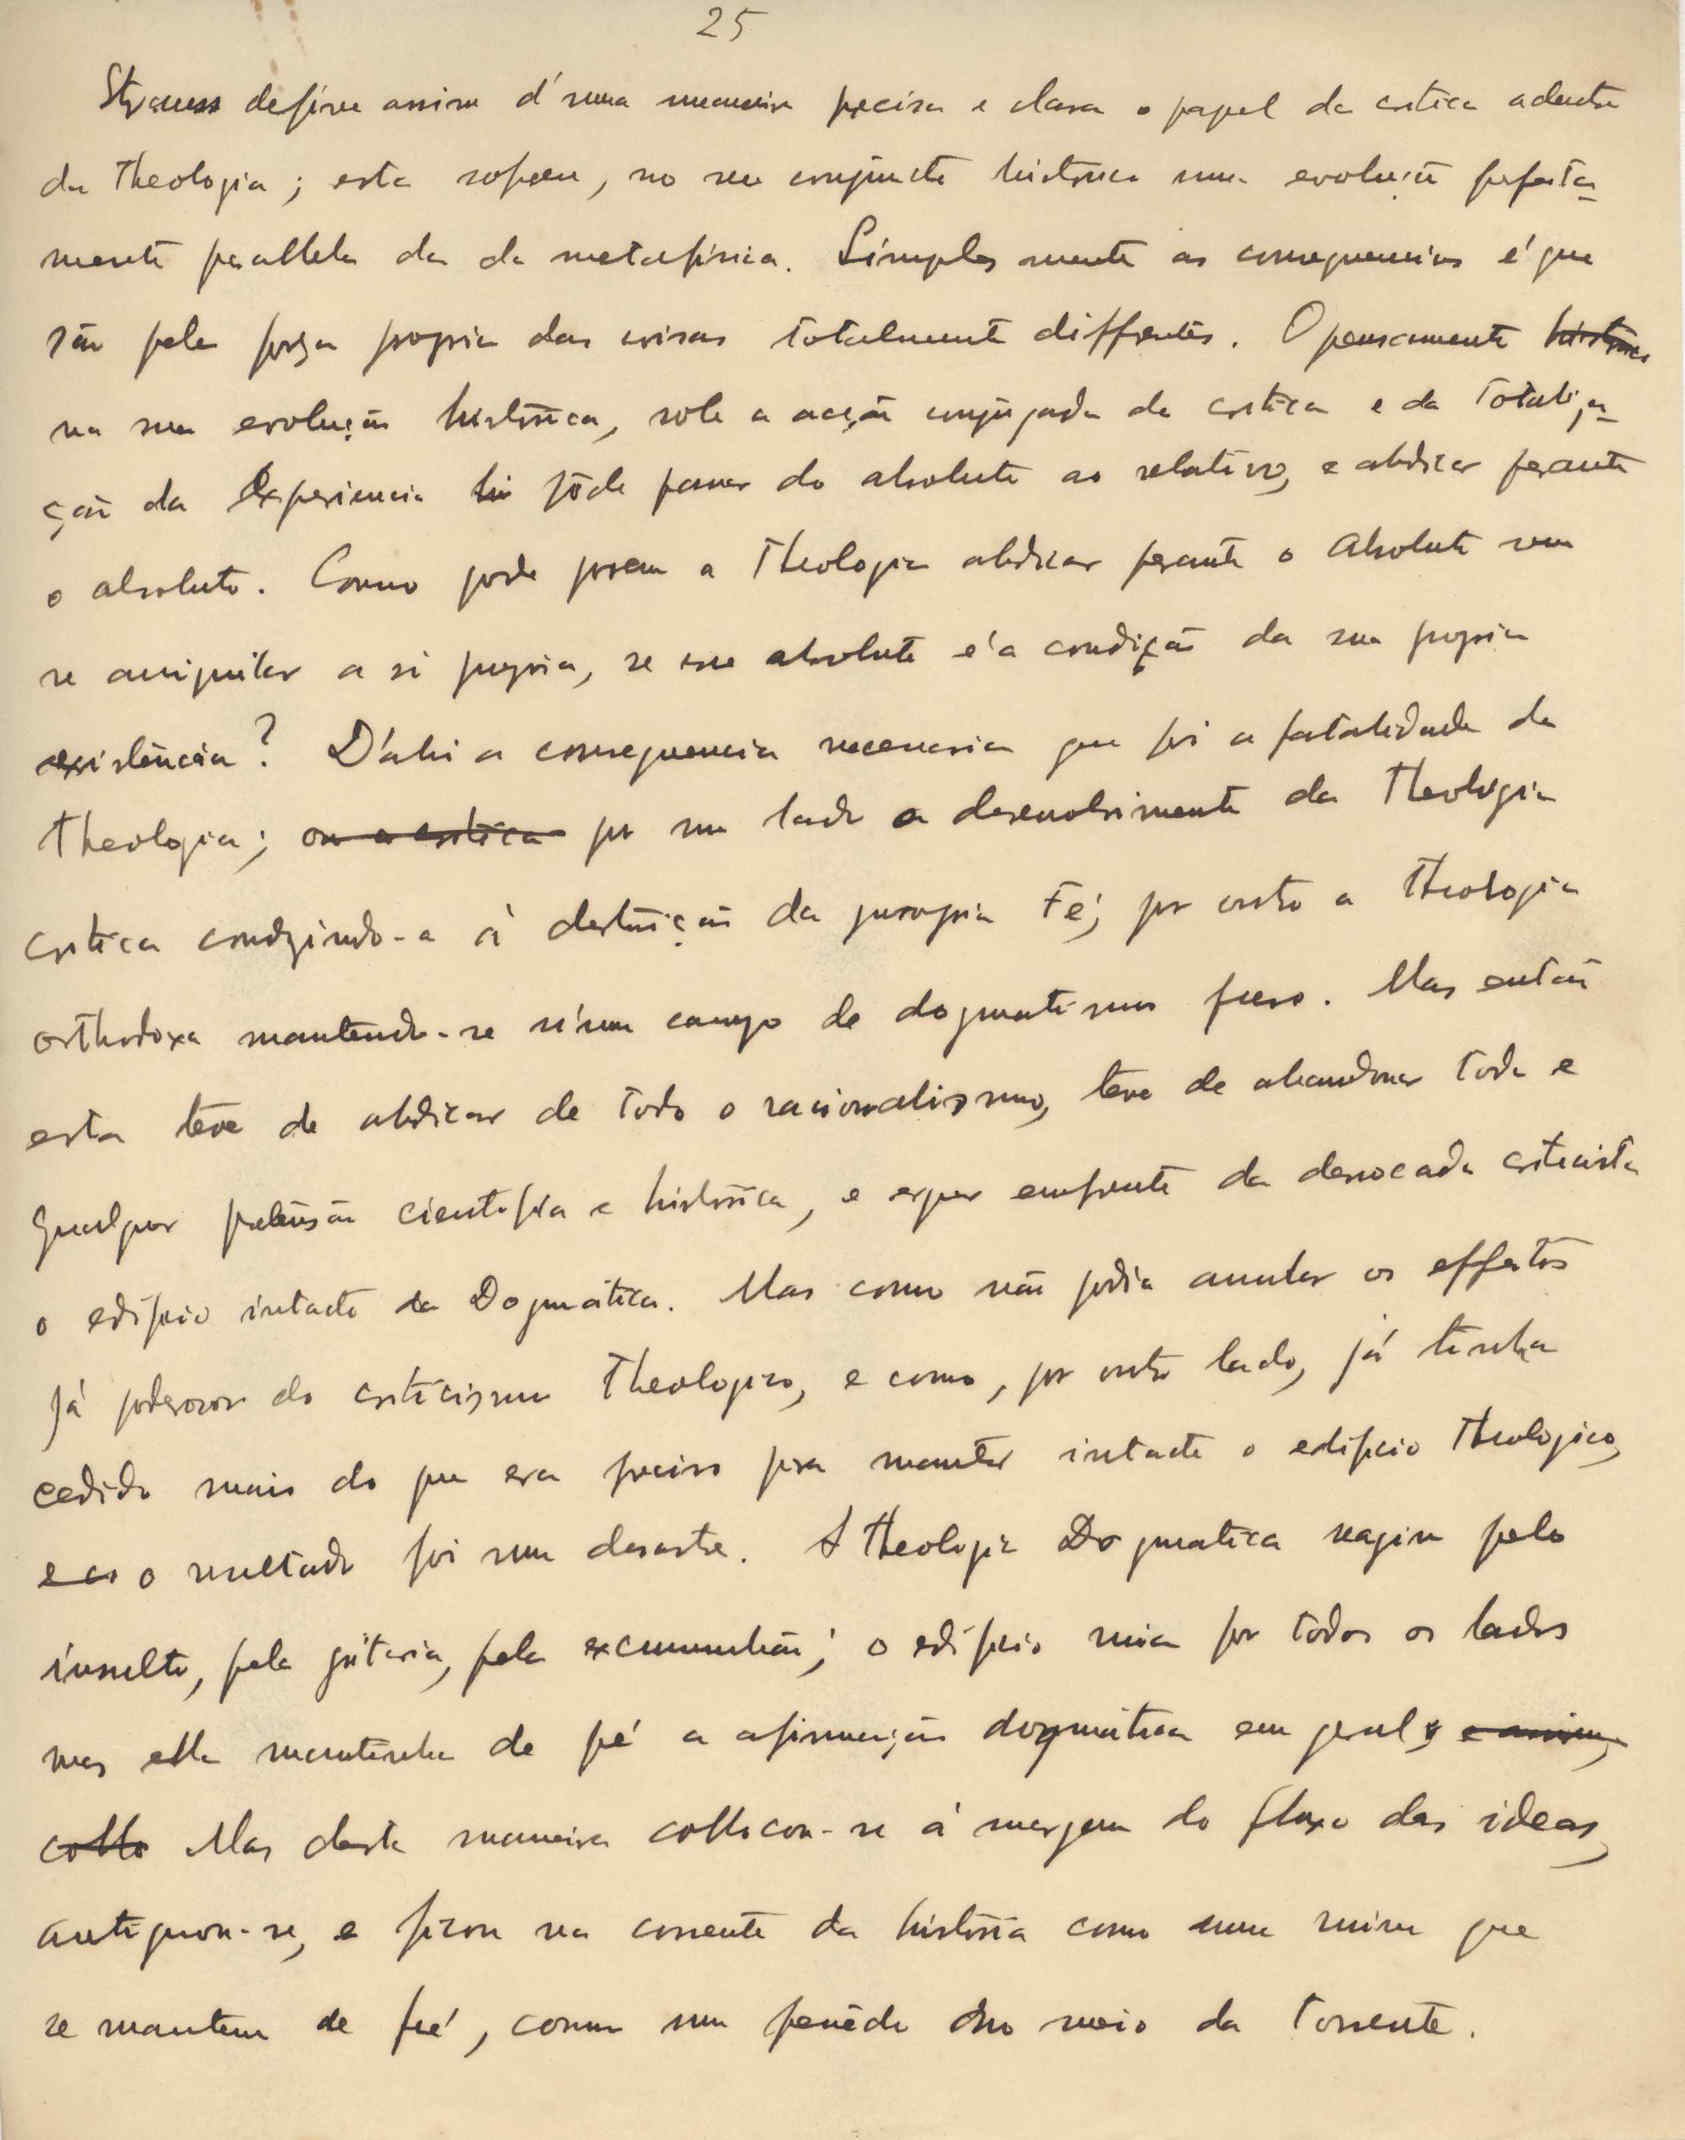 25
Strauss define assim d'uma maneira precisa e clara o papel da critica adentro
da Theologia; esta soffreu, no seu conjuncto historico uma evolução perfeita-
mente parallela da da metafisica. Simplesmente as consequencias é que
são pela força propria das coisas totalmente differentes. O pensamento historico
na sua evolução histórica, sob a acção conjugada da critica e da Totaliza-
ção da Experiencia hi pôde passar do absoluto ao relativo, e abdicar perante
o absoluto. Como pode porem a Theologia abdicar perante o Absoluto sem
se aniquilar a si propria, se esse absoluto é a condição da sua propria
existência? D'ahi a consequencia necessaria que foi a fatalidade da
Theologia; ou a critica por um lado o desenvolvimento da Theologia
critica conduzindo-a á destruição da propria Fé; por outro a Theologia
orthodoxa mantendo-se n'um campo de dogmatismo puro. Mas então
esta teve de abdicar de todo o racionalismo, teve de abandonar toda e
qualquer pretensão cientifica e histórica, e erguer emfrente da derrocada criticista
o edificio intacto da Dogmática. Mas como não podia annular os effeitos
já poderosos do criticismo Theologico, e como, por outro lado, já tinha
cedido mais do que era preciso para manter intacto o edificio Theologico,
e co o resultado foi um desastre. A Theologia Dogmatica reagiu pelo
insulto, pela gritaria, pela excomunhão; o edificio ruia por todos os lados
mas ella mantinha de pé a afirmação dogmática em geral; e assim,
collo Mas desta maneira collocou-se á margem do fluxo das ideas,
antiquou-se, e ficou na corrente da história como uma ruina que
se mantem de pé, como um penêdo no meio da torrente.